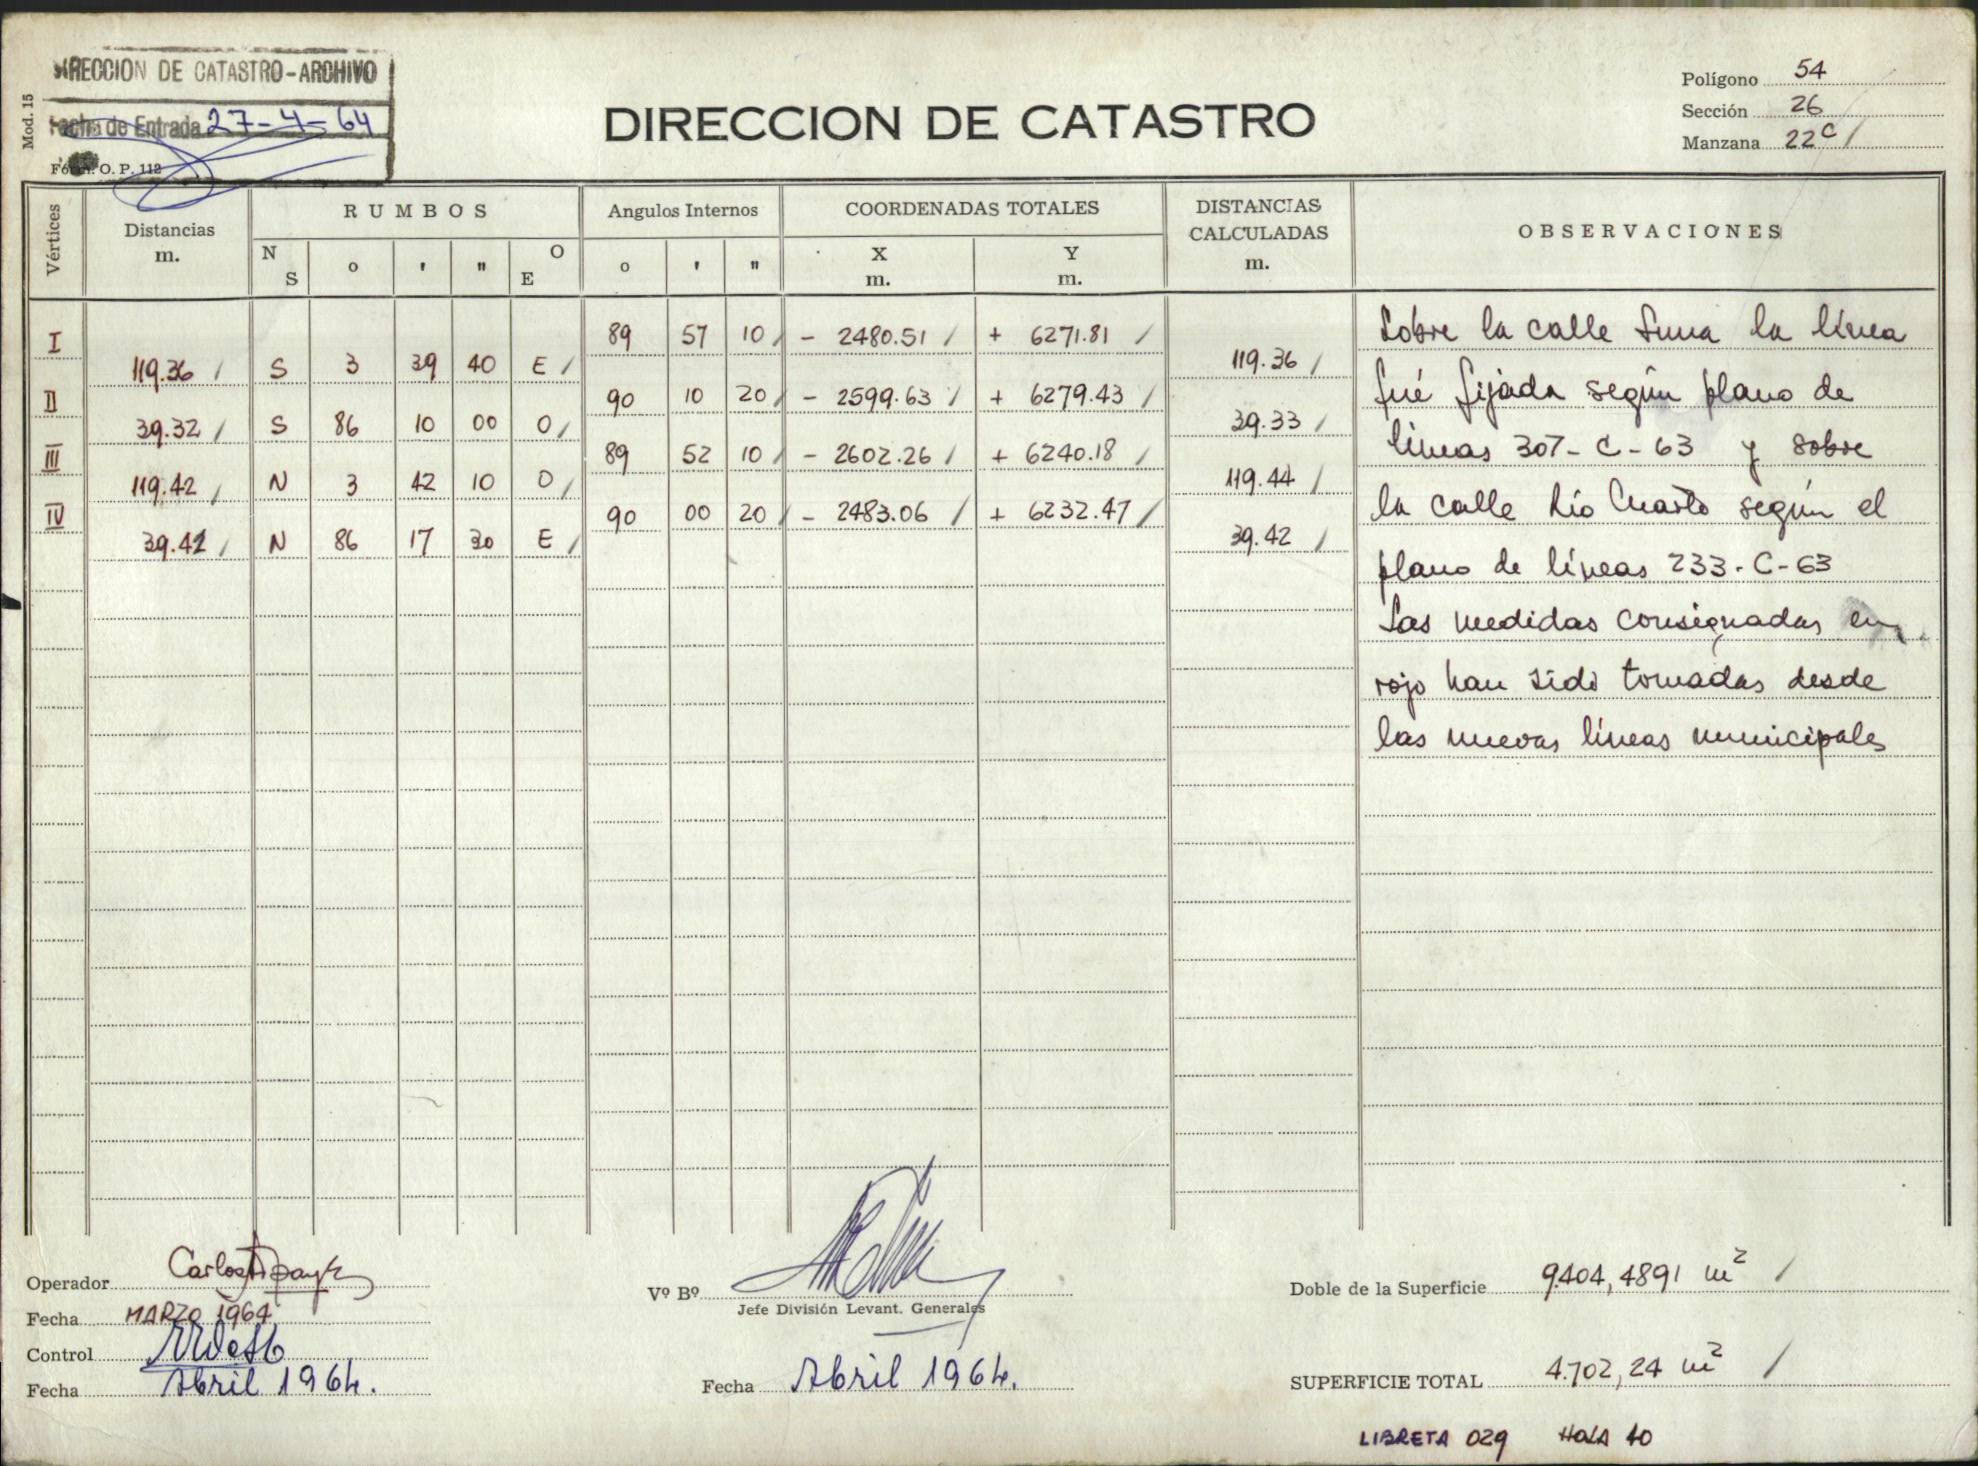 DIRECCION DE CATASTRO-ARCHIVO
Fecha de Entrada 27-4-64
Mod. 15
Fórm. O. P. 112
DIRECCION DE CATASTRO
Polígono 54
Sección 26
Manzana 22c
Vértices
Distancias m.
RUMBOS
N S ° ' " O E
Angulos Internos
° ' "
COORDENADAS TOTALES
X m. Y m.
DISTANCIAS CALCULADAS m.
OBSERVACIONES
I 89 57 10 - 2480.51 + 6271.81
119.36 S 3 39 40 E 119.36
II 90 10 20 - 2599.63 + 6279.43
39.32 S 86 10 00 O 39.33
III 89 52 10 - 2602.26 + 6240.18
119.42 N 3 42 10 O 119.44
IV 90 00 20 - 2483.06 + 6232.47
39.42 N 86 17 30 E 39.42
Sobre la calle la línea
fué fijada según plano de
líneas 307-C-63 y sobre
la calle Río Cuarto según el
plano de líneas 233-C-63
Las medidas consignadas en
rojo han sido tomadas desde
las nuevas líneas municipales
Operador Carlos
Fecha MARZO 1964
Control
Fecha Abril 1964.
Vº Bº
Jefe División Levant. Generales
Fecha Abril 1964.
Doble de la Superficie 9.404,4891 m²
SUPERFICIE TOTAL 4.702,24 m²
LIBRETA 029 HOJA 40